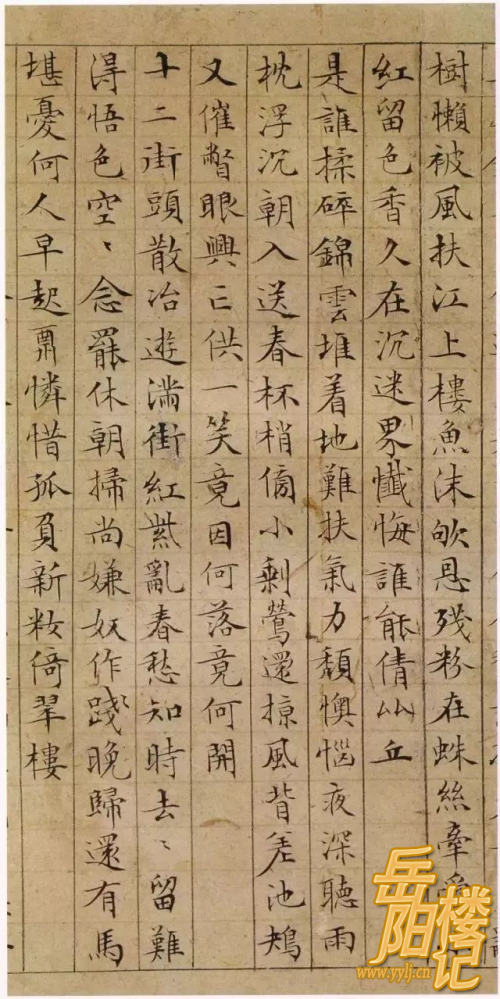 樹懶被風扶江上樓魚沫欨恩殘粉在蛛絲牽
紅留色香久在沉迷界懺悔誰能倩比丘
是誰揉碎錦雲堆着地難扶氣力頹懊惱夜深聽雨
枕浮沉朝入送春杯梢傍小剩鶯還掠風背差池
又催瞥眼興亡供一笑竟因何落竟何開
十二街頭散冶遊滿街紅紫亂春愁知時去〻留難
得悟色空〻念罷休朝掃尚嫌奴作踐晚歸還有馬
堪憂何人早起憐惜孤負新籹倚翠樓
岳陽樓记
www.yylj.cn